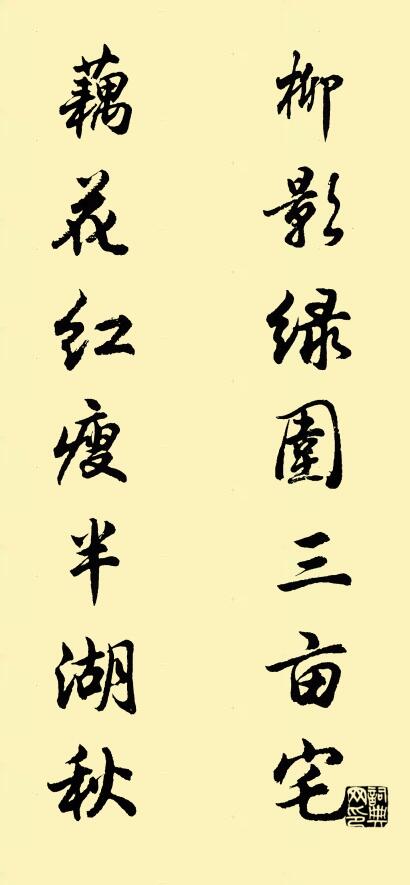 柳影绿圍三亩宅
藕花红瘦半湖秋
詞典网印